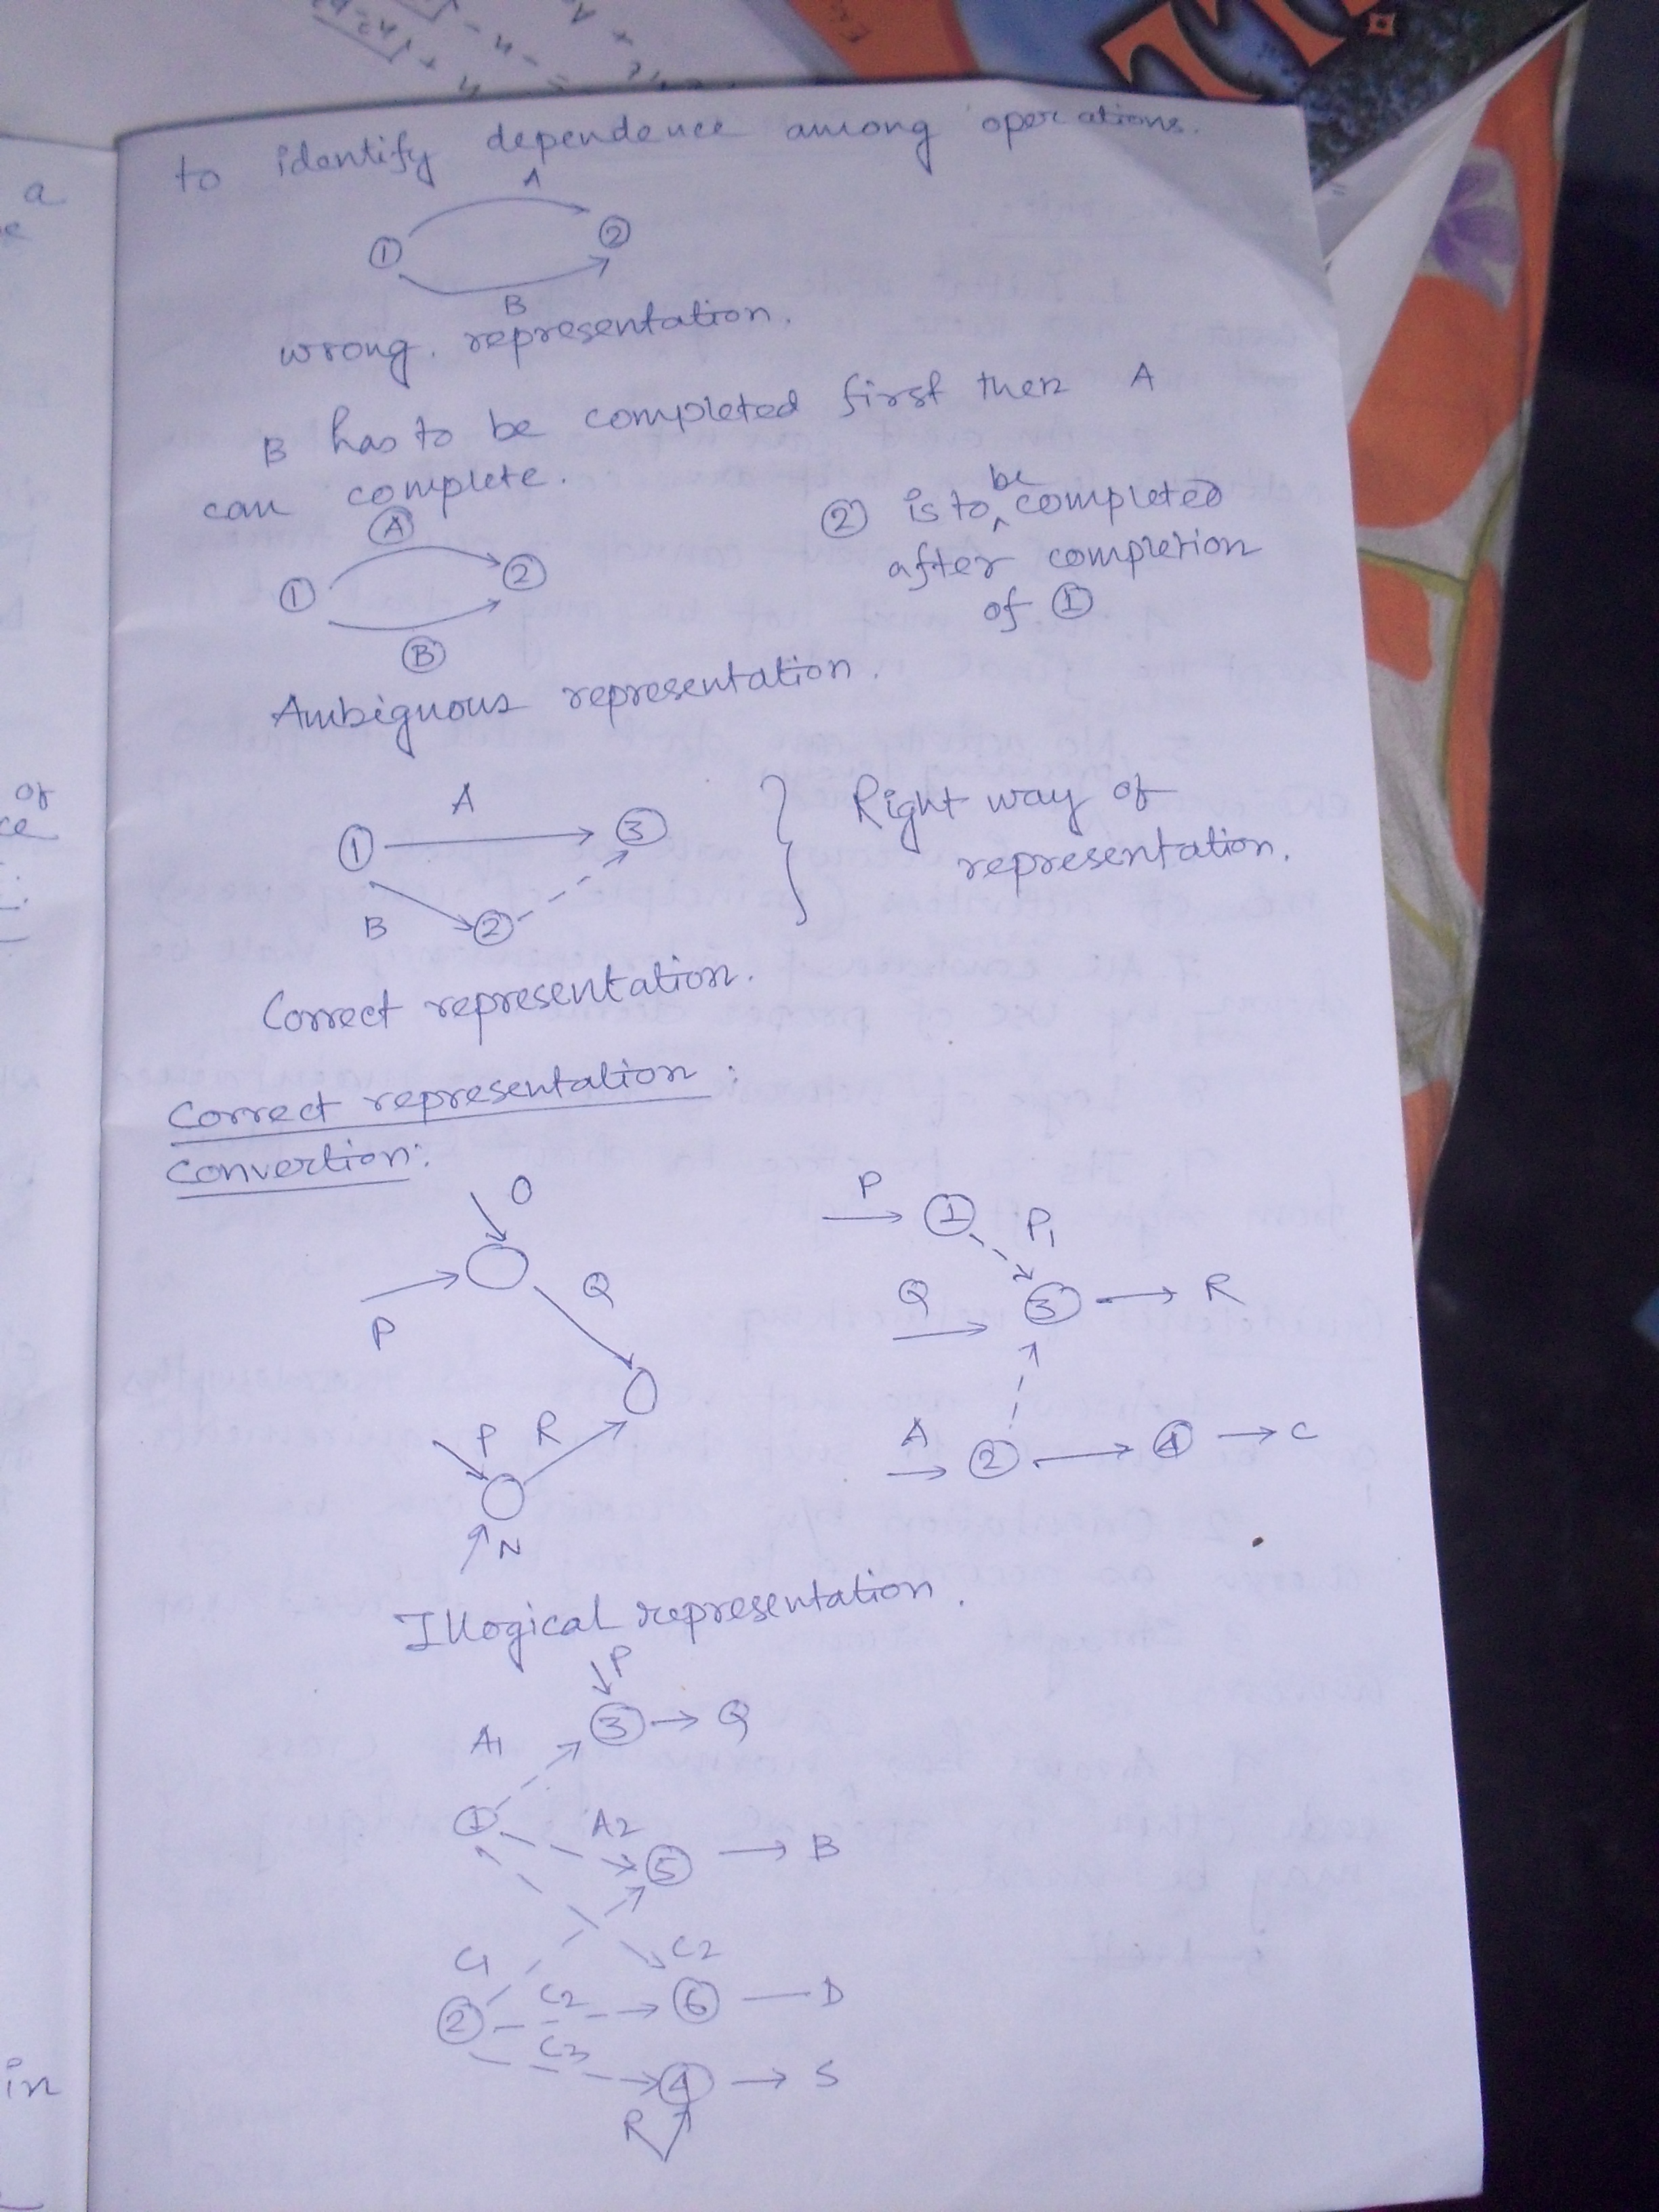 to identify dependence among operations.
A
1 2
B
wrong. representation.
B has to be completed first then A
can complete.
A
1 2
B
2 is to be completed
after completion
of 1
Ambiguous representation.
A
1 3
B 2
Right way of
representation.
Correct representation.
Correct representation:
Convertion:
O
P
Q
P R
N
P 1 P1
Q 3 R
A 2 4 C
Illogical representation.
P
A1 3 Q
1 A2 5 B
C1 C2
2 C2 6 D
C3
4 S
R
a
or
ce
in